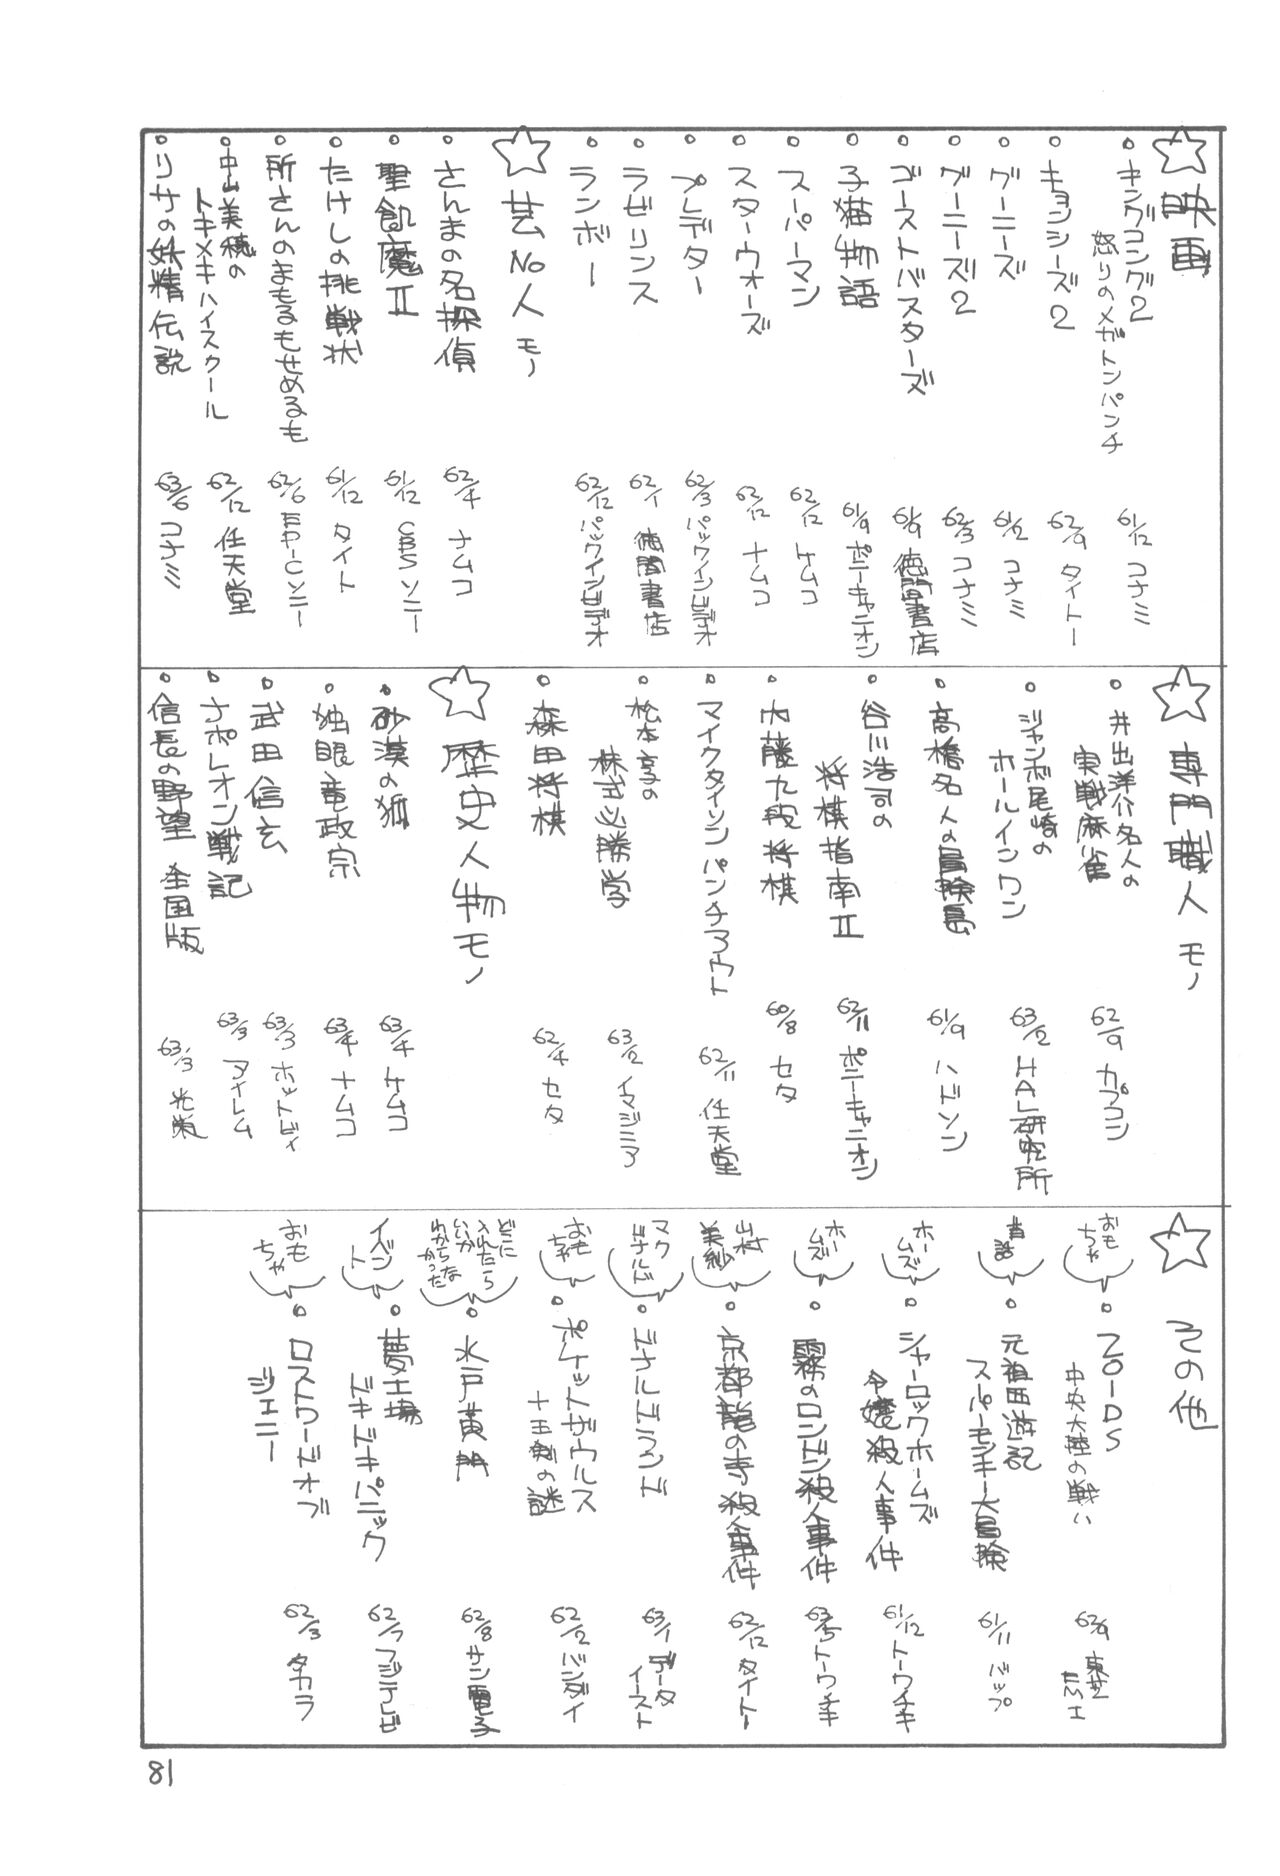 ☆映画
・キングコング2
怒りのメガトンパンチ
61/12 コナミ
・キョンシーズ2
62/9 タイトー
・グーニーズ
61/2 コナミ
・グーニーズ2
62/3 コナミ
・ゴーストバスターズ
61/9 徳間書店
・子猫物語
61/9 ポニーキャニオン
・スーパーマン
62/12 ケムコ
・スターウォーズ
62/12 ナムコ
・プレデター
62/3 パックインビデオ
・ラビリンス
62/1 徳間書店
・ランボー
62/12 パックインビデオ
☆芸NO人モノ
・さんまの名探偵
62/4 ナムコ
・聖飢魔Ⅱ
61/12 CBSソニー
・たけしの挑戦状
61/12 タイト
・所さんのまもるもせめるも
62/6 EPICソニー
・中山美穂の
トキメキハイスクール
62/12 任天堂
・リサの妖精伝説
63/6 コナミ
☆専門職人モノ
・井出洋介名人の
実戦麻雀
62/9 カプコン
・ジャンボ尾崎の
ホールインワン
63/2 HAL研究所
・高橋名人の冒険島
61/9 ハドソン
・谷川浩司の
将棋指南Ⅱ
62/11 ポニーキャニオン
・内藤九段将棋
60/8 セタ
・マイクタイソンパンチアウト
62/11 任天堂
・松本亨の
株式必勝学
63/2 イマジニア
・森田将棋
62/4 セタ
☆歴史人物モノ
・砂漠の狐
63/4 ケムコ
・独眼竜政宗
63/4 ナムコ
・武田信玄
63/3 ホットビィ
・ナポレオン戦記
63/3 アイレム
・信長の野望 全国版
63/3 光栄
☆その他
おもちゃ
・ZOIDS
中央大陸の戦い
62/9 東芝EMI
昔話
・元祖西遊記
スーパーモンキー大冒険
61/11 バップ
ホームズ
・シャーロックホームズ
令嬢殺人事件
61/12 トーワチキ
ホームズ
・霧のロンドン殺人事件
63/5 トーワチキ
山村美紗
・京都龍の寺殺人事件
62/12 タイトー
マクドナルド
・ドナルドランド
63/1 データイースト
おもちゃ
・ポケットザウルス
十王剣の謎
62/2 バンダイ
どこに入れたらいいかわからなかった
・水戸黄門
62/8 サン電子
イベント
・夢工場
ドキドキパニック
62/7 フジテレビ
おもちゃ
・ロストワードオブ
ジェニー
62/3 タカラ
81